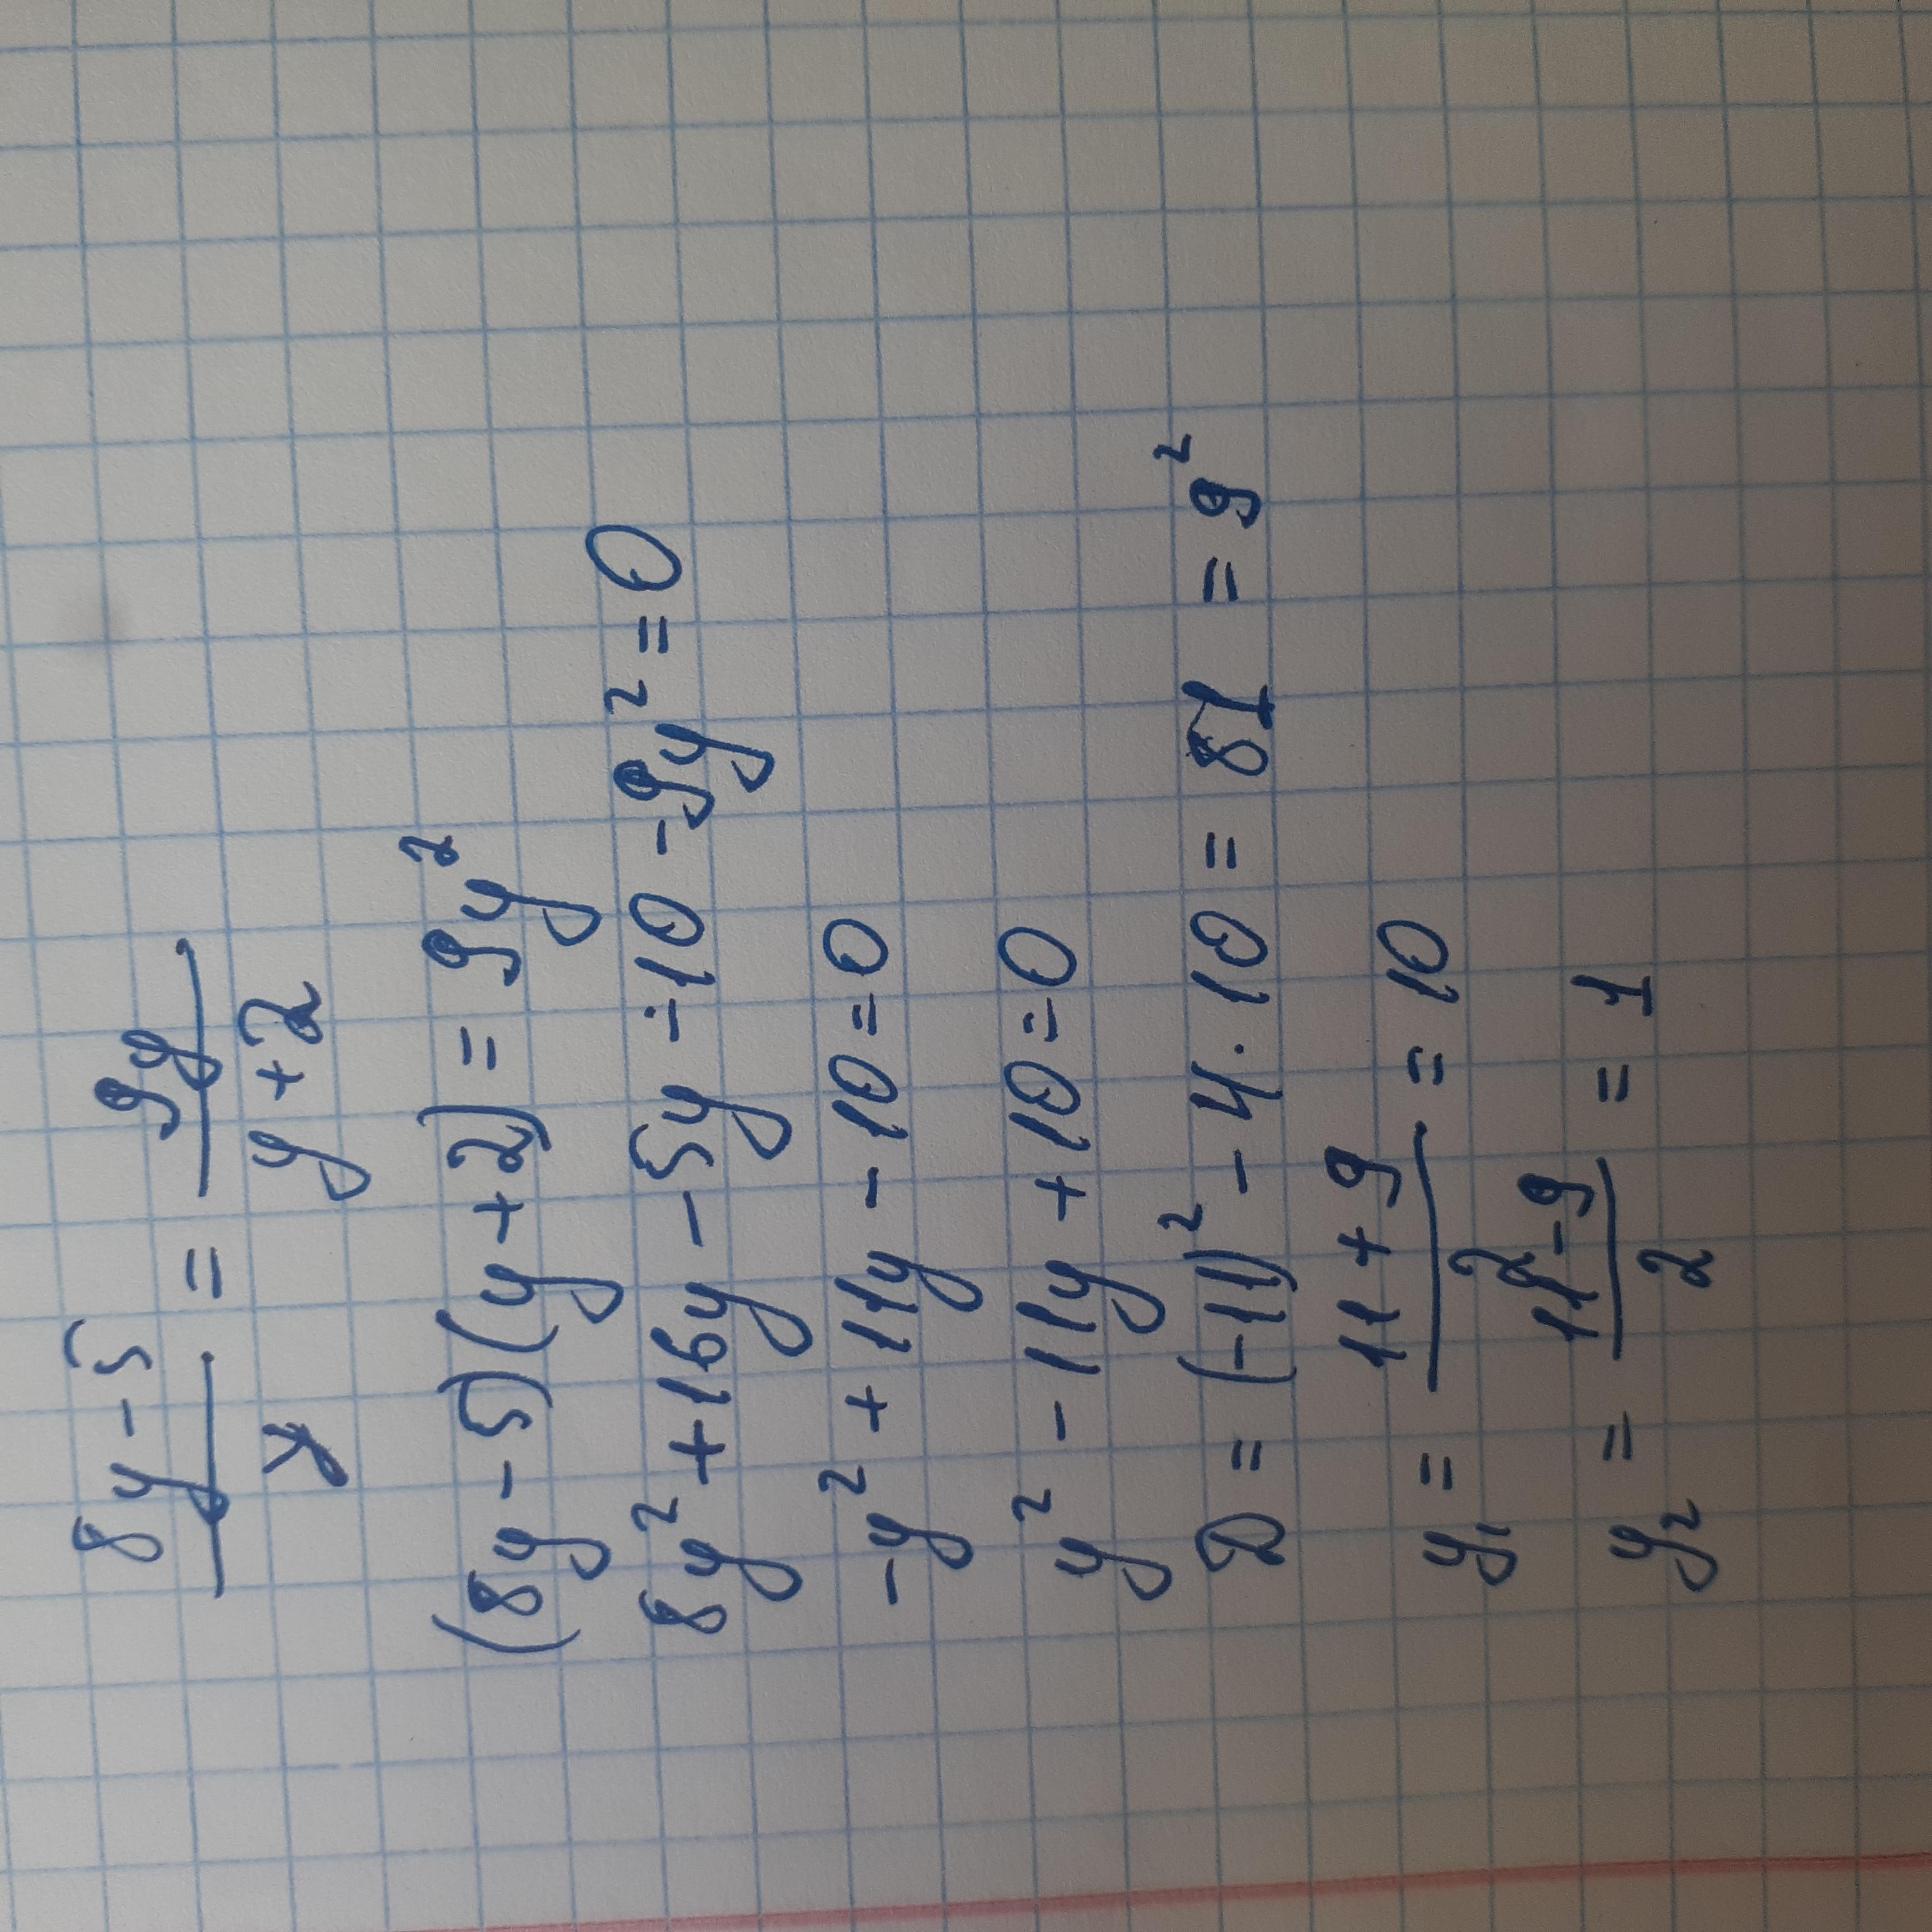 8y - 5 / y = 9y / y + 2
(8y - 5)(y + 2) = 9y²
8y² + 16y - 5y - 10 - 9y² = 0
-y² + 11y - 10 = 0
y² - 11y + 10 = 0
D = (-11)² - 4 · 10 = 81 = 9²
y₁ = 11 + 9 / 2 = 10
y₂ = 11 - 9 / 2 = 1